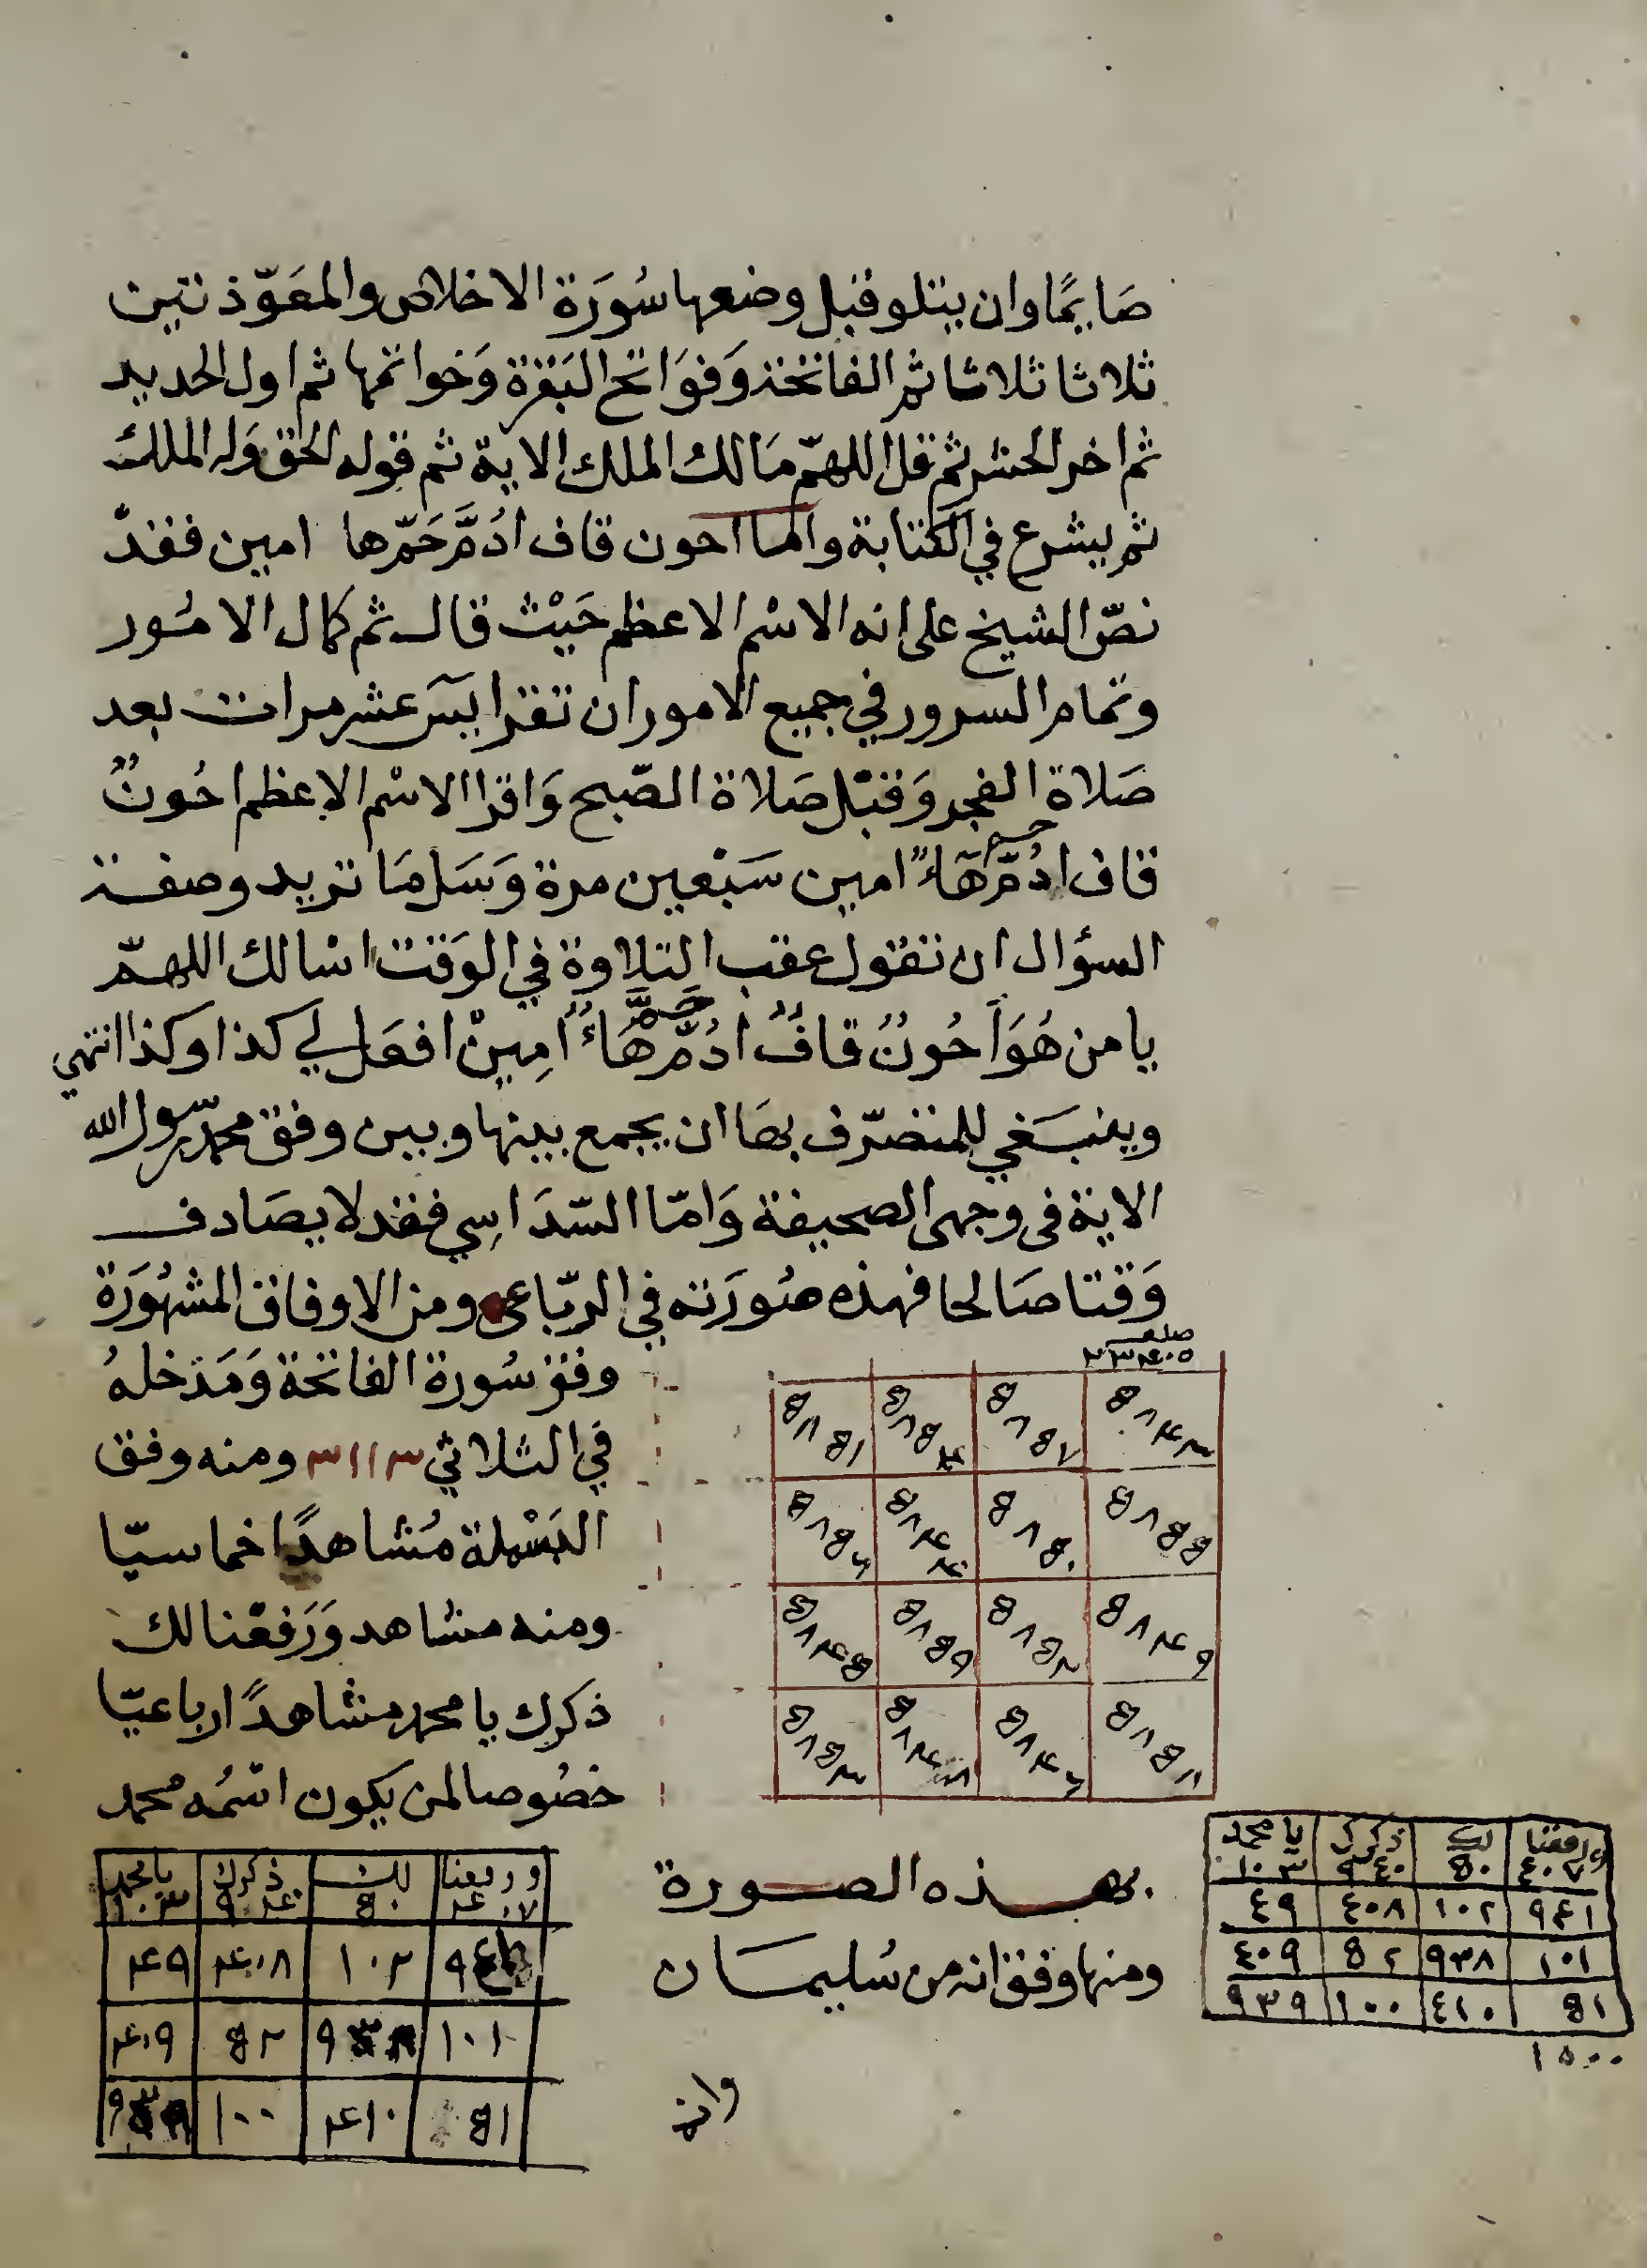 صَايمًا وان يتلو قبل وضعها سُورَة الاخلاص والمعَوّذتين
ثلاثا ثلاثا ثم الفاتحة وَفوَاتح البَقرة وَخواتمها ثم اول الحديد
ثم اخر الحشر ثم قل اللهمّ مَالكُ الملك الاية ثم قوله الحق وَله الملك
ثم يشرع في الكتابة واما احون قاف ادُمَّ حَمّ ها امين فقد
نصّ الشيخ على انه الاسْم الاعظم حَيْث قال ثم كمال الامُور
وتمام السرور في جميع الامور ان تقرا يسَ عشر مرات بعد
صَلاة الفجر وَقبْل صَلاة الصّبح وَاقرا الاسْم الاعظم احُونٌ
قاف ادُمَّ حم هَاءٌ امين سَبْعين مرة وَسَل مَا تريد وصفة
السؤال ان تقول عقب التلاوة في الوَقت اسْالك اللهمّ
يا من هُوَ اَحُونٌ قافٌ ادُمَّ حَمَّ هَاءٌ اٰمِينْ افعَل لي كذا وكذا انتهى
وينبَغي للمتصرّف بهَا ان يجمع بينها وبين وفق محمد رسول الله
الاية فى وجهى الصحيفة وَامّا السّدَاسِي فقد لا يصَادف
وَقتا صَالحا فهذه صُورَته في الربّاعى ومن الاوفاق المشهُورَة
ضلع
٢٣٤٠٥
٥٨٤٣ ٥٨٥٧ ٥٨٥٤ ٥٨٥١
٥٨٥٥ ٥٨٥٠ ٥٨٤٤ ٥٨٥٦
٥٨٤٩ ٥٨٥٢ ٥٨٥٩ ٥٨٤٥
٥٨٥٨ ٥٨٤٦ ٥٨٤٨ ٥٨٥٣
وفق سُورة الفاتحة وَمَدْخلهُ
في الثلاثي ٣١١٣ ومنه وفق
البَسْملة مُشاهدًا خماسيّا
ومنه مشاهد وَرَفعْنا لك
ذكرك يا محمد مشاهدًا رباعيّا
خصُوصا لمن يكون اسْمُه محمد
بهذه الصورة
ومنها وفق انه من سُليمان
وانه
ورفعنا لك ذكرك يا محمد
٤٠٧ ٥٠ ٩٤٠ ١٠٣
٩٤١ ١٠٢ ٤٠٨ ٤٩
١٠١ ٩٣٨ ٥٢ ٤٠٩
٥١ ٤١٠ ١٠٠ ٩٣٩
ورفعنا لك ذكرك يا محمد
٤٠٧ ٥٠ ٩٤٠ ١٠٣
٩٤١ ١٠٢ ٤٠٨ ٤٩
١٠١ ٩٣٨ ٥٢ ٤٠٩
٥١ ٤١٠ ١٠٠ ٩٣٩
١٥٠٠